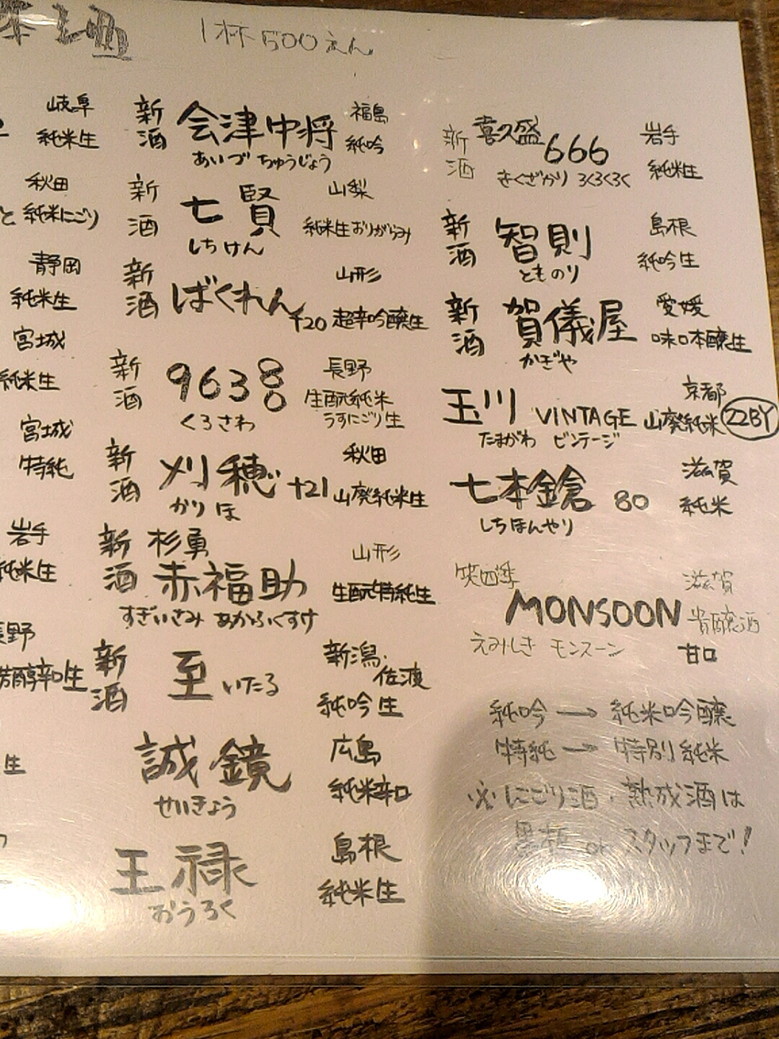 1杯500えん
岐阜
純米生
秋田
純米にごり
静岡
純米生
宮城
純米生
宮城
特純
岩手
純米生
長野
芳醇辛口生
生
新酒 会津中将 福島
あいづ ちゅうじょう 純吟
新酒 七賢 山梨
しちけん 純米生おりがらみ
新酒 ばくれん 山形
+20 超辛吟醸生
新酒 9638 長野
くろさわ 生酛純米
うすにごり生
新酒 刈穂 +21 秋田
かりほ 山廃純米生
新酒 杉勇
赤福助 山形
すぎいさみ あかふくすけ 生酛特純生
新酒 至 いたる 新潟・佐渡
純吟生
誠鏡 広島
せいきょう 純米辛口
王禄 島根
おうろく 純米生
新酒 喜久盛 666 岩手
きくざかり ろくろくろく 純米生
新酒 智則 島根
とものり 純吟生
新酒 賀儀屋 愛媛
かぎや 味口本醸生
玉川 VINTAGE 京都
たまがわ ビンテージ 山廃純米 22BY
七本鎗 80 滋賀
しちほんやり 純米
笑四季 滋賀
MONSOON 貴醸酒
えみしき モンスーン 甘口
純吟 → 純米吟醸
特純 → 特別純米
※にごり酒・熟成酒は
黒板 or スタッフまで!